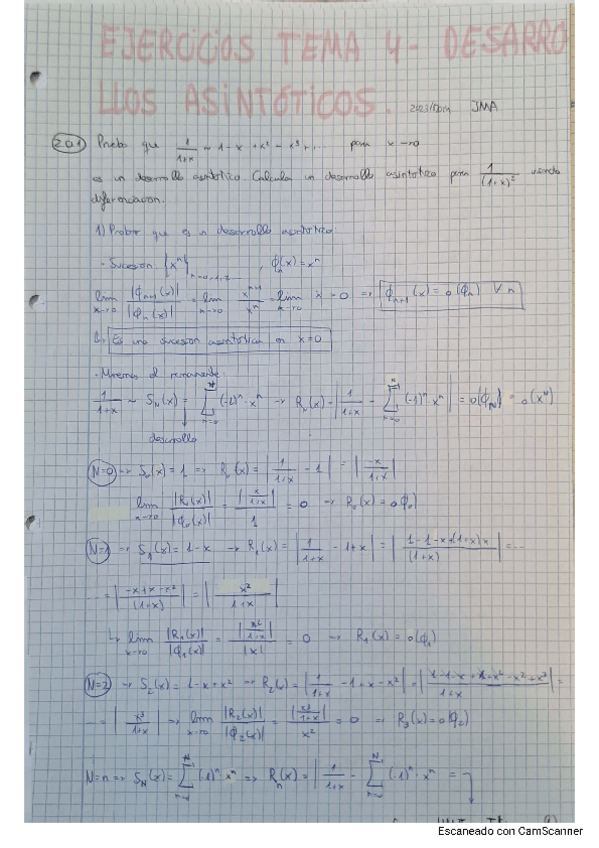 EJERCICIOS TEMA 4 - DESARRO
LLOS ASINTÓTICOS. JMA
2.0.1 Prueba que 1/(1+x) ~ 1-x+x²-x³+... para x→0
es un desarrollo asintótico. Calcula un desarrollo asintótico para 1/(1+x)² usando
diferenciación.
1) Probar que es un desarrollo asintótico:
- Sucesión {xⁿ} n=0,1,2,... , ϕₙ(x)=xⁿ
lim x→0 |ϕₙ₊₁(x)|/|ϕₙ(x)| = lim x→0 xⁿ⁺¹/xⁿ = lim x→0 x = 0 → ϕₙ₊₁(x) = o(ϕₙ) ∀n
Es una sucesión asintótica en x=0
- Miremos el remanente:
1/(1+x) ~ S_N(x) = Σ n=0 N (-1)ⁿ·xⁿ → R_N(x) = |1/(1+x) - Σ n=0 N (-1)ⁿxⁿ| = o(ϕ_N) = o(x^N)
desarrollo
N=0 → S₀(x)=1 → R₀(x) = |1/(1+x) - 1| = |-x/(1+x)|
lim x→0 |R₀(x)|/|ϕ₀(x)| = |x/(1+x)|/1 = 0 → R₀(x) = o(ϕ₀)
N=1 → S₁(x)=1-x → R₁(x) = |1/(1+x) - 1+x| = |(1-1-x+(1+x)x)/(1+x)| = ...
... = |(-x+x-x²)/(1+x)| = |x²/(1+x)|
↳ lim x→0 |R₁(x)|/|ϕ₁(x)| = |x²/(1+x)|/|x| = 0 → R₁(x) = o(ϕ₁)
N=2 → S₂(x)=1-x+x² → R₂(x) = |1/(1+x) - 1+x-x²| = |(1-1-x+x+x²-x²+x³)/(1+x)| =
... = |x³/(1+x)| → lim x→0 |R₂(x)|/|ϕ₂(x)| = |x³/(1+x)|/x² = 0 → R₃(x) = o(ϕ₂)
N=n → S_N(x) = Σ N (-1)ⁿ·xⁿ → Rₙ(x) = |1/(1+x) - Σ N (-1)ⁿ·xⁿ =
Escaneado con CamScanner